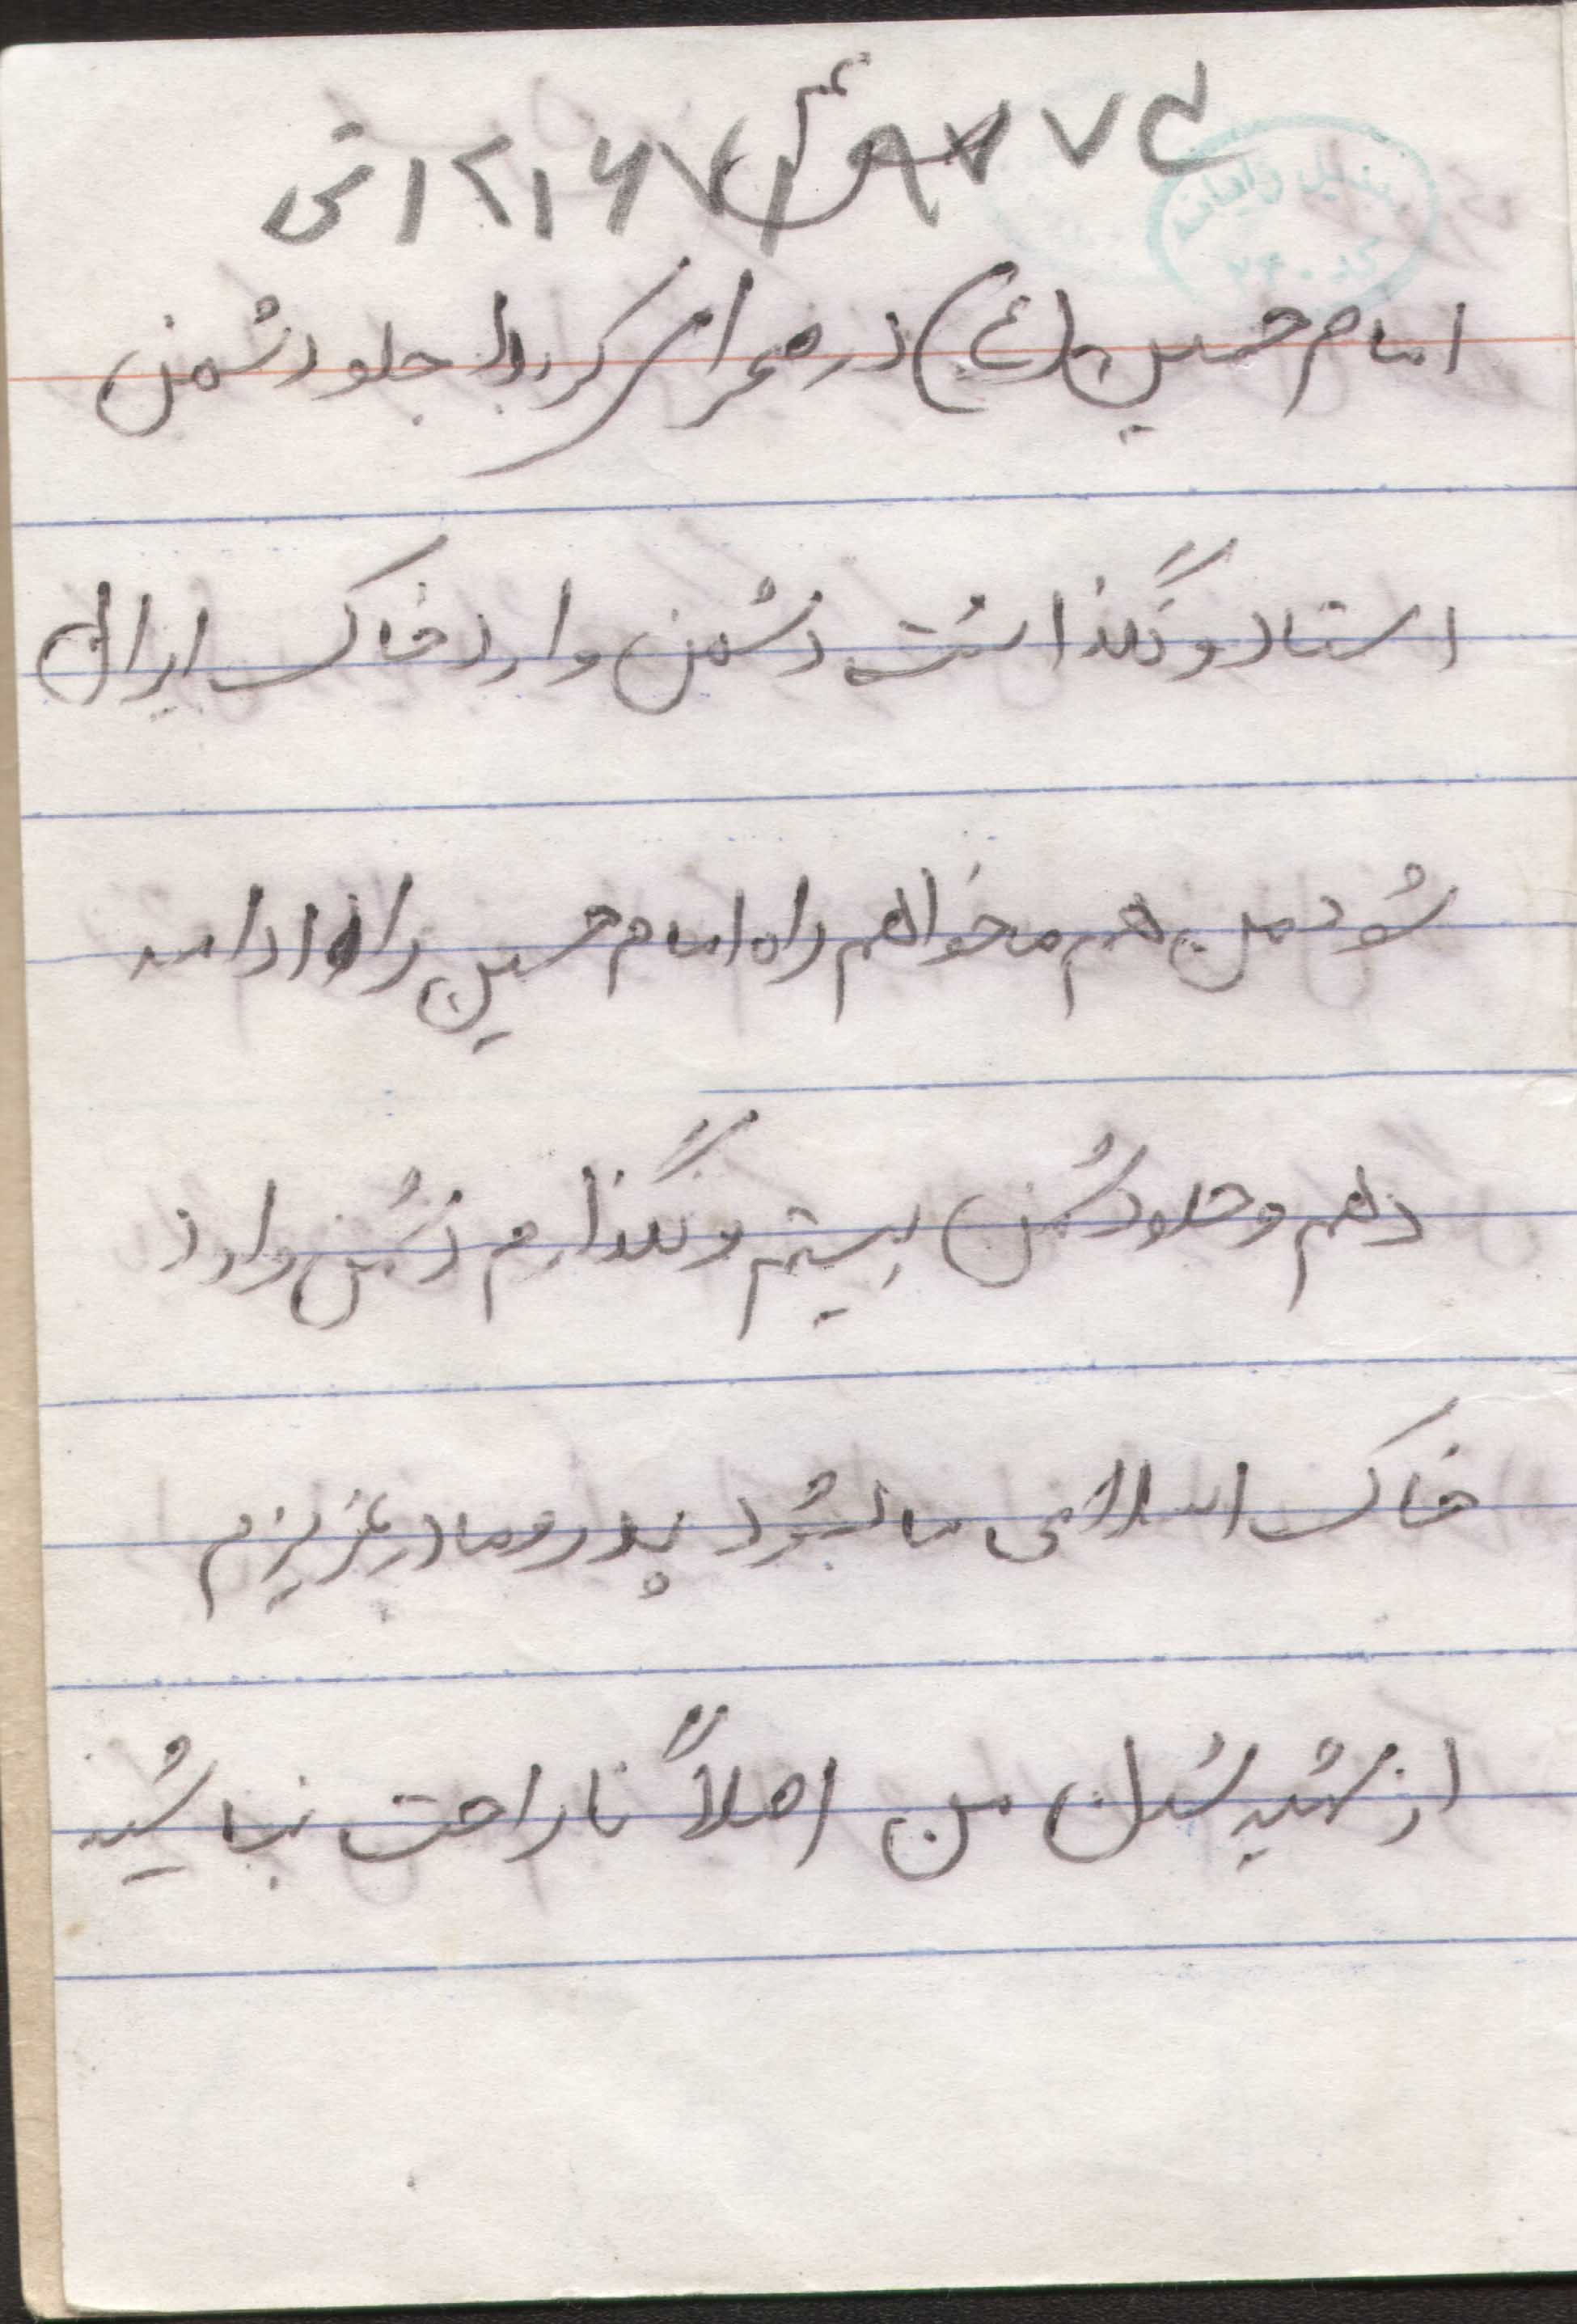 امام حسین (ع) در صحرای کربلا جلو دشمن
استاد و نگذاشت دشمن وارد خاک ایران
شود من هم مخواهم راه امام حسین را ادامه
دهم و جلو دشمن بیستم و نگذارم دشمن وارد
خاک اسلامی ما بشود پدر و مادر عزیزم
از شهید شدن من اصلاً ناراحت نباشید